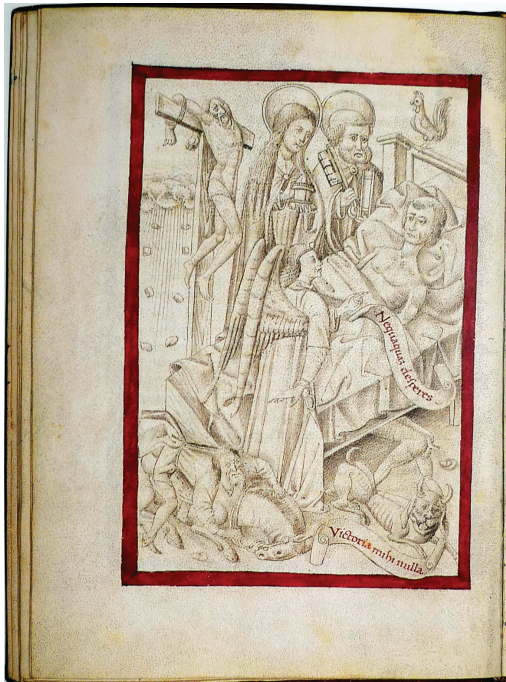 Nequaquaʒ desperes
Victoria mihi nulla